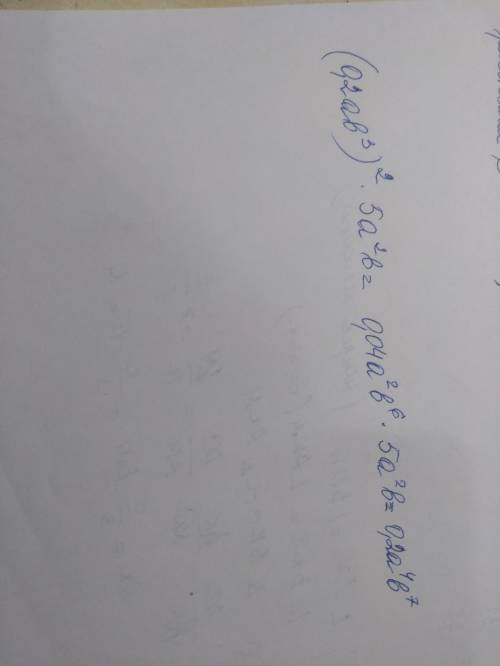 (0,2ab³)² · 5a²b = 0,04a²b⁶ · 5a²b = 0,2a⁴b⁷